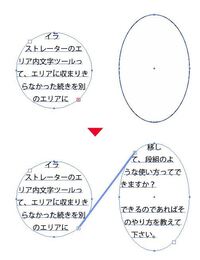 イラ
ストレーターのエ
リア内文字ツールっ
て、エリアに収まりき
らなかった続きを別
のエリアに
イラ
ストレーターのエ
リア内文字ツールっ
て、エリアに収まりき
らなかった続きを別
のエリアに
移し
て、段組のよ
うな使い方ってで
きますか？
できるのであればそ
のやり方を教えて
下さい。